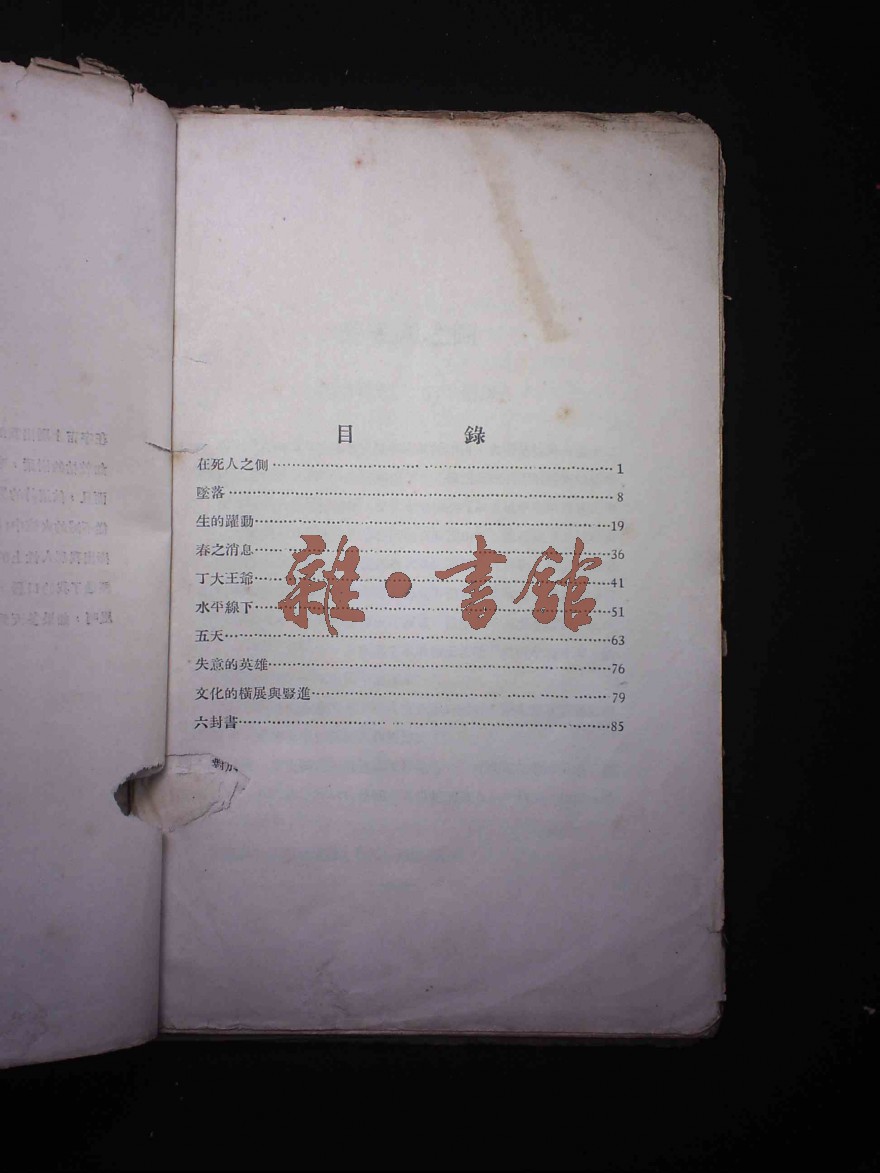 目 錄
在死人之側……1
墜落……8
生的躍動……19
春之消息……36
丁大王爺……41
水平線下……51
五天……63
失意的英雄……76
文化的橫展與豎進……79
六封書……85
雜・書館